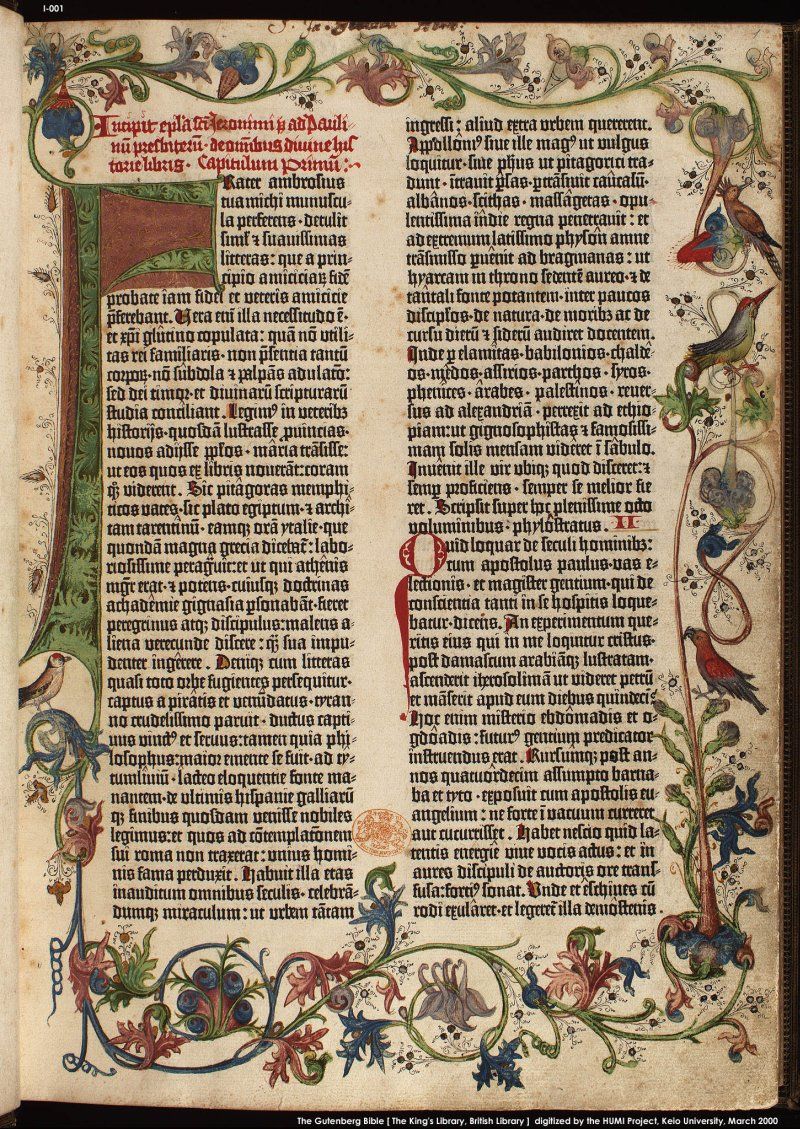 I-001
Incipit epl̃a sc̃i Jeronimi p̃ ad Pauli-
nũ presbiterũ · de om̃ibus diuine his
torie libris · Capitulum Primũ :·
Frater ambrosius
tua michi munuscu-
la perferens · detulit
siml̃ ⁊ suauissimas
litteras : que a prin-
cipio amiciciaꝝ fidẽ
probate iam fidei et veteris amicicie
p̃ferebant. Uera em̃ illa necessitudo ẽ·
et xp̃i glutino copulata: quã nõ vtili-
tas rei familiaris · non p̃sentia tantũ
corporꝝ · nõ subdola ⁊ palpãs adulatõ:
sed dei timor · et diuinarũ scripturarũ
studia conciliant . Legimꝰ in veteribꝫ
historijs · quosdã lustrasse ꝓuincias·
nouos adijsse pp̃los · maria trãsisse:
ut eos quos ex libris nouerãt: coram
qꝫ viderent . Sic pitagoras memphi-
ticos vates · sic plato egiptum · ⁊ archi-
tam tarentinũ · eamqꝫ orã ytalie · que
quondã magna grecia dicebat̃: labo-
riosissime peragᷣuit: et ut qui athenis
mgr̃ erat · ⁊ potens · cuiusqꝫ doctrinas
achademie gignasia ꝑsonabãt · fieret
peregrinus atqꝫ discipulus: malens a-
liena verecunde discere: qꝫ̃ sua impu-
denter ingerere . Deniqꝫ cum litteras
quasi toto orbe fugientes persequitur·
captus a piratis et venũdatus · tyran-
no crudelissimo paruit · ductus capti-
uus vinctꝰ et seruus: tamen quia phi-
losophus: maior emente se fuit · ad ty-
tumliuiũ · lacteo eloquentie fonte ma-
nantem · de vltimis hispanie galliarũ
qꝫ finibus quosdam venisse nobiles
legimus: et quos ad cõtemplatõnem
sui roma non traxerat: vnius homi-
nis fama perduxit . Habuit illa etas
inauditum omnibus seculis · celebrã-
dumqꝫ miraculum: ut vrbem tãtam
ingressi: aliud extra vrbem quererent.
Apollonꝰ siue ille magꝰ ut vulgus
loquitur · siue ph̃us ut pitagorici tra-
dunt · ĩtrauit p̃sas · ꝑtrãsiuit caucasũ·
albãnos · scithas · massagetas · opu-
lentissima ĩdie regna penetrauit: et
ad extremum latissimo physon amne
trãsmisso puenit ad bragmanas: ut
hyarcam in throno sedentẽ aureo · ⁊ de
tantali fonte potantem · inter paucos
discip̃los · de natura · de moribꝫ ac de
cursu dierũ ⁊ siderũ audiret docentem.
Inde ꝑ elamitas · babilonios · chalde-
os · medos · assirios · parthos · syros·
phenices · arabes · palestinos · reuer-
sus ad alexandriã · perrexit ad ethio-
piam: ut gignosophistas ⁊ famosissi-
mam solis mensam videret ĩ sabulo.
Inuenit ille vir vbiqꝫ quod disceret: ⁊
semꝑ proficiens · semper se melior fie
ret . Scripsit super hoc plenissime octo
voluminibus · phylostratus . II
Quid loquar de seculi hominibꝫ:
cum apostolus paulus · vas e-
lectionis · et magister gentium · qui de
conscientia tanti in se hospitis loque-
batur · dicens . An experimentum que-
ritis eius qui in me loquitur cristus·
post damascum arabiãqꝫ lustratam·
ascenderit iherosolimã ut videret petrũ
et mãserit apud eum diebus quindeci.
Hoc enim misterio ebdomadis et o-
gdoadis: futurꝰ gentium predicator
instruendus erat . Rursumqꝫ post an-
nos quatuordecim assumpto barna-
ba et tyto · exposuit cum apostolis eu-
angelium: ne forte ĩ vacuum curreret
aut cucurisset . Habet nescio quid la-
tentis energie viue vocis actus: et in
aures discipuli de auctoris ore trans-
fusa: fortiꝰ sonat . Unde et eschines cũ
rodi exularet · et legeret̃ illa demostenis
The Gutenberg Bible [ The King's Library, British Library ] digitized by the HUMI Project, Keio University, March 2000